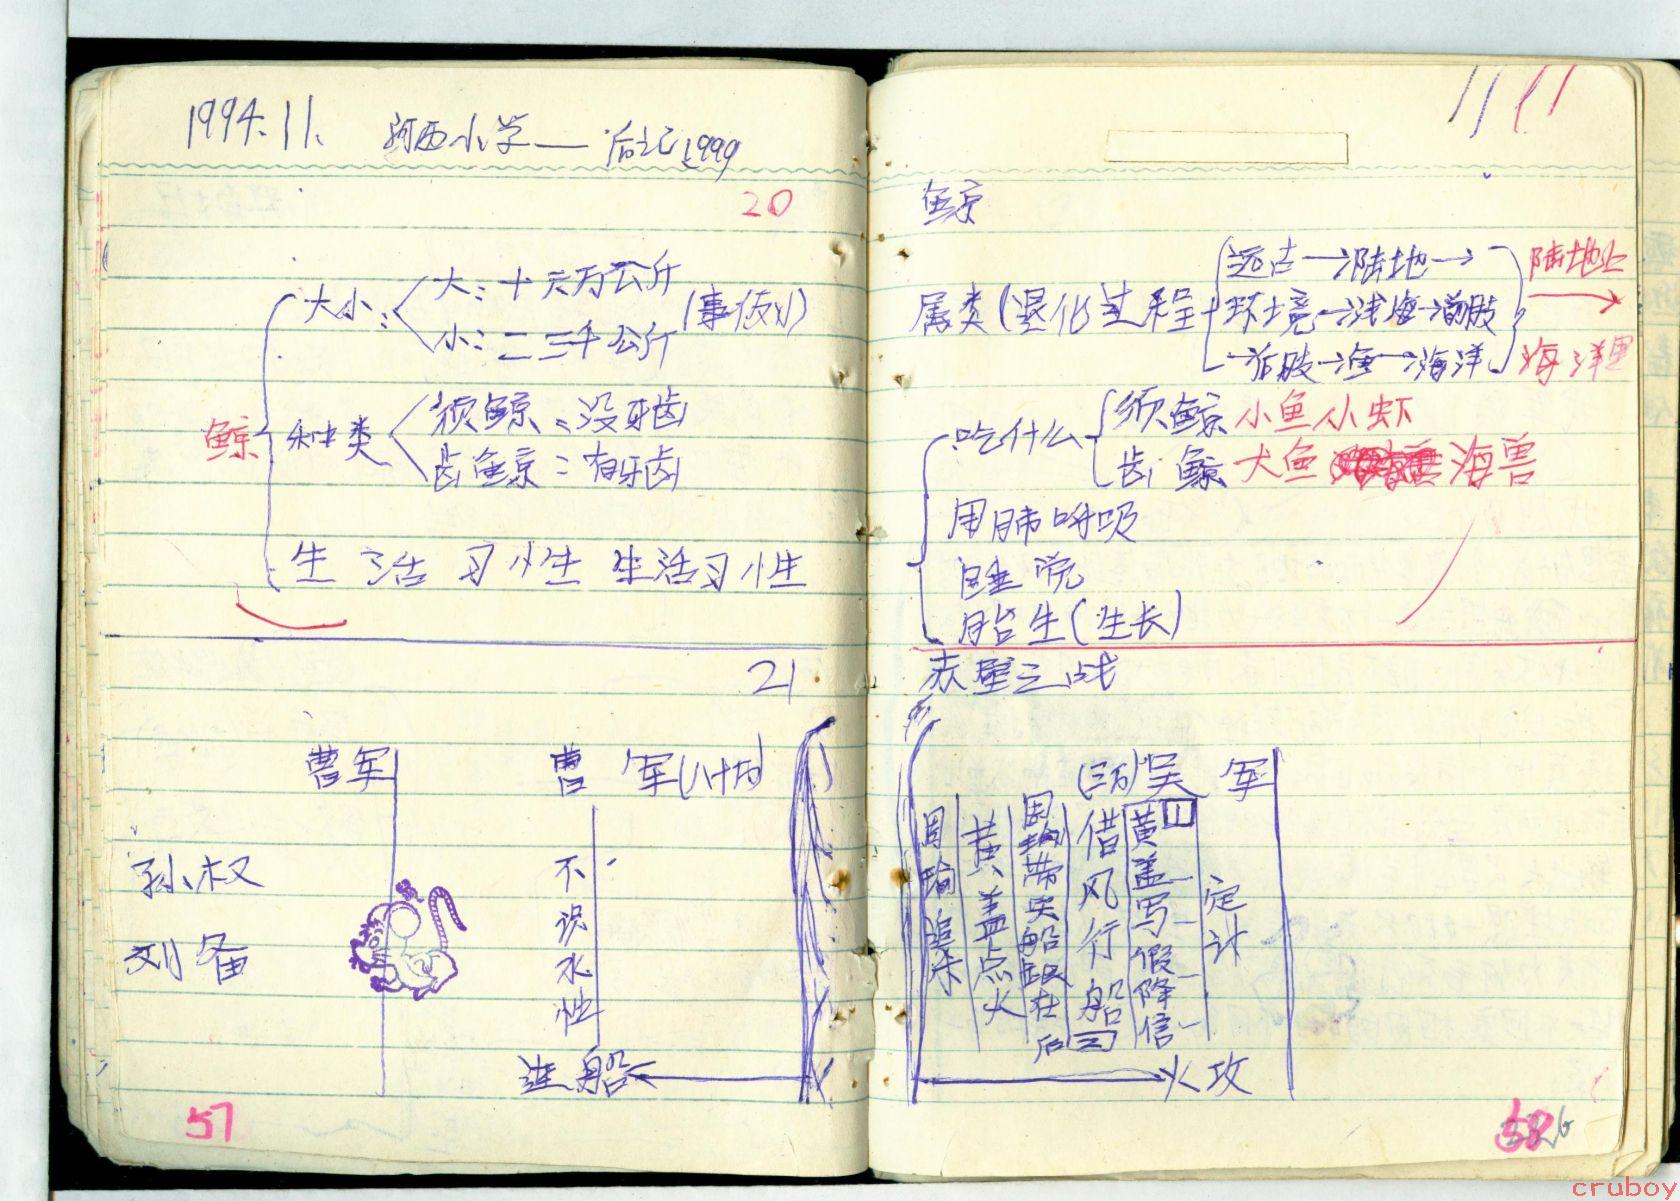 1994.11.
河西小学——后记1999
20
鲸
大小：
大：十六万公斤
小：二三千公斤
(事例)
种类
须鲸：没牙齿
齿鲸：有牙齿
生活习性 生活习性
21
曹军
曹军(八十万)
孙权
刘备
不识水性
连船
57
11 11
鲸
属类(退化过程
远古→陆地→
环境→浅海→前肢
→后肢→鱼→海洋
陆地上
海洋里
吃什么
须鲸 小鱼小虾
齿鲸 大鱼 海兽
用肺呼吸
睡觉
胎生(生长)
赤壁之战
(三万)吴军
定计
黄盖写假降信
借风行船
黄盖点火
周瑜追杀
火攻
58
cruboy